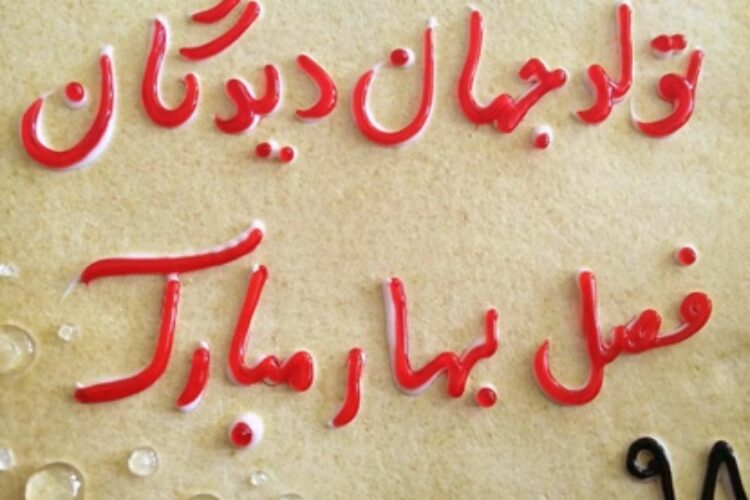 تولد جهان دیدگان
فصل بهار مبارک
۹۸